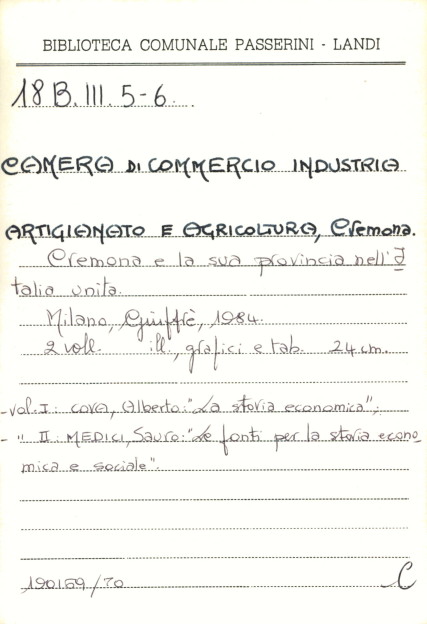 BIBLIOTECA COMUNALE PASSERINI - LANDI
18 B. III. 5-6.
CAMERA DI COMMERCIO INDUSTRIA
ARTIGIANATO E AGRICOLTURA, Cremona.
Cremona e la sua provincia nell'I
talia unita.
Milano, Giuffrè, 1984.
2 voll. ill., grafici e tab. 24 cm.
- vol. I: COVA, Alberto: "La storia economica";
- " II: MEDICI, Sauro: "Le fonti per la storia econo
mica e sociale".
190169/70 C